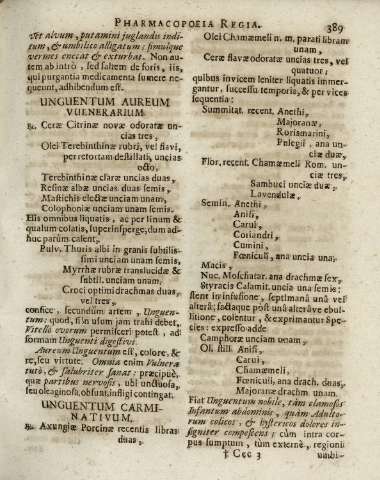 PHARMACOPOEIA REGIA. 389
vet alvum, putamini juglandis indi-
tum, & umbilico alligatum; simulque
vermes enecat & exturbat. Non au-
tem ab intrò, sed saltem de foris, iis,
qui purgantia medicamenta sumere ne-
queunt, adhibendum est.
UNGUENTUM AUREUM
VULNERARIUM.
℞. Ceræ Citrinæ novæ odoratæ un-
cias tres,
Olei Terebinthinæ rubri, vel flavi,
per retortam destillati, uncias
octo,
Terebinthinæ claræ uncias duas,
Resinæ albæ uncias duas semis,
Mastichis electæ unciam unam,
Colophoniæ unciam unam semis.
Eis omnibus liquatis, ac per linum &
qualum colatis, superinsperge, dum ad-
huc parùm calent,
Pulv. Thuris albi in granis subtilis-
simi unciam unam semis,
Myrrhæ rubræ translucidæ &
subtil. unciam unam,
Croci optimi drachmas duas,
vel tres,
confice, secundùm artem, Unguen-
tum; quod, si in usum jam trahi debet,
Vitello ovorum permisceri potest, ad
formam Unguenti digestivi.
Aureum Unguentum est, colore, &
re, seu virtute. Omnia enim Vulnera
tutò, & salubriter sanat: præcipuè,
quæ partibus nervosis, ubi unctuosa,
seu oleaginosa, obsunt, infligi contingat.
UNGUENTUM CARMI-
NATIVUM.
℞. Axungiæ Porcinæ recentis libras
duas,
Olei Chamæmeli n. m. parati libram
unam,
Ceræ flavæ odoratæ uncias tres, vel
quatuor;
quibus invicem leniter liquatis immer-
gantur, successu temporis, & per vices
sequentia:
Summitat. recent. Anethi,
Majoranæ,
Rorismarini,
Pulegii, ana un-
ciæ duæ,
Flor. recent. Chamæmeli Rom. un-
ciæ tres,
Sambuci unciæ duæ,
Lavendulæ,
Semin. Anethi,
Anisi,
Carui,
Coriandri,
Cumini,
Fœniculi, ana uncia una,
Macis,
Nuc. Moschatar. ana drachmæ sex,
Styracis Calamit. uncia una semis;
stent in infusione, septimanâ unâ vel
alterâ; sadaque post unâ alterâve ebul-
litione, colentur, & exprimantur Spe-
cies: expresso adde
Camphoræ unciam unam,
Ol. still. Anisi,
Carui,
Chamæmeli,
Fœniculi, ana drach. duas,
Majoranæ drachm. unam.
Fiat Unguentum nobile, tàm clamosos
Infantum abdominis, quàm Adulto-
rum colicos, & hystericos dolores in-
signiter compescens; cùm intra cor-
pus sumptum, tùm externè, regioni
† Ccc 3 umbi-